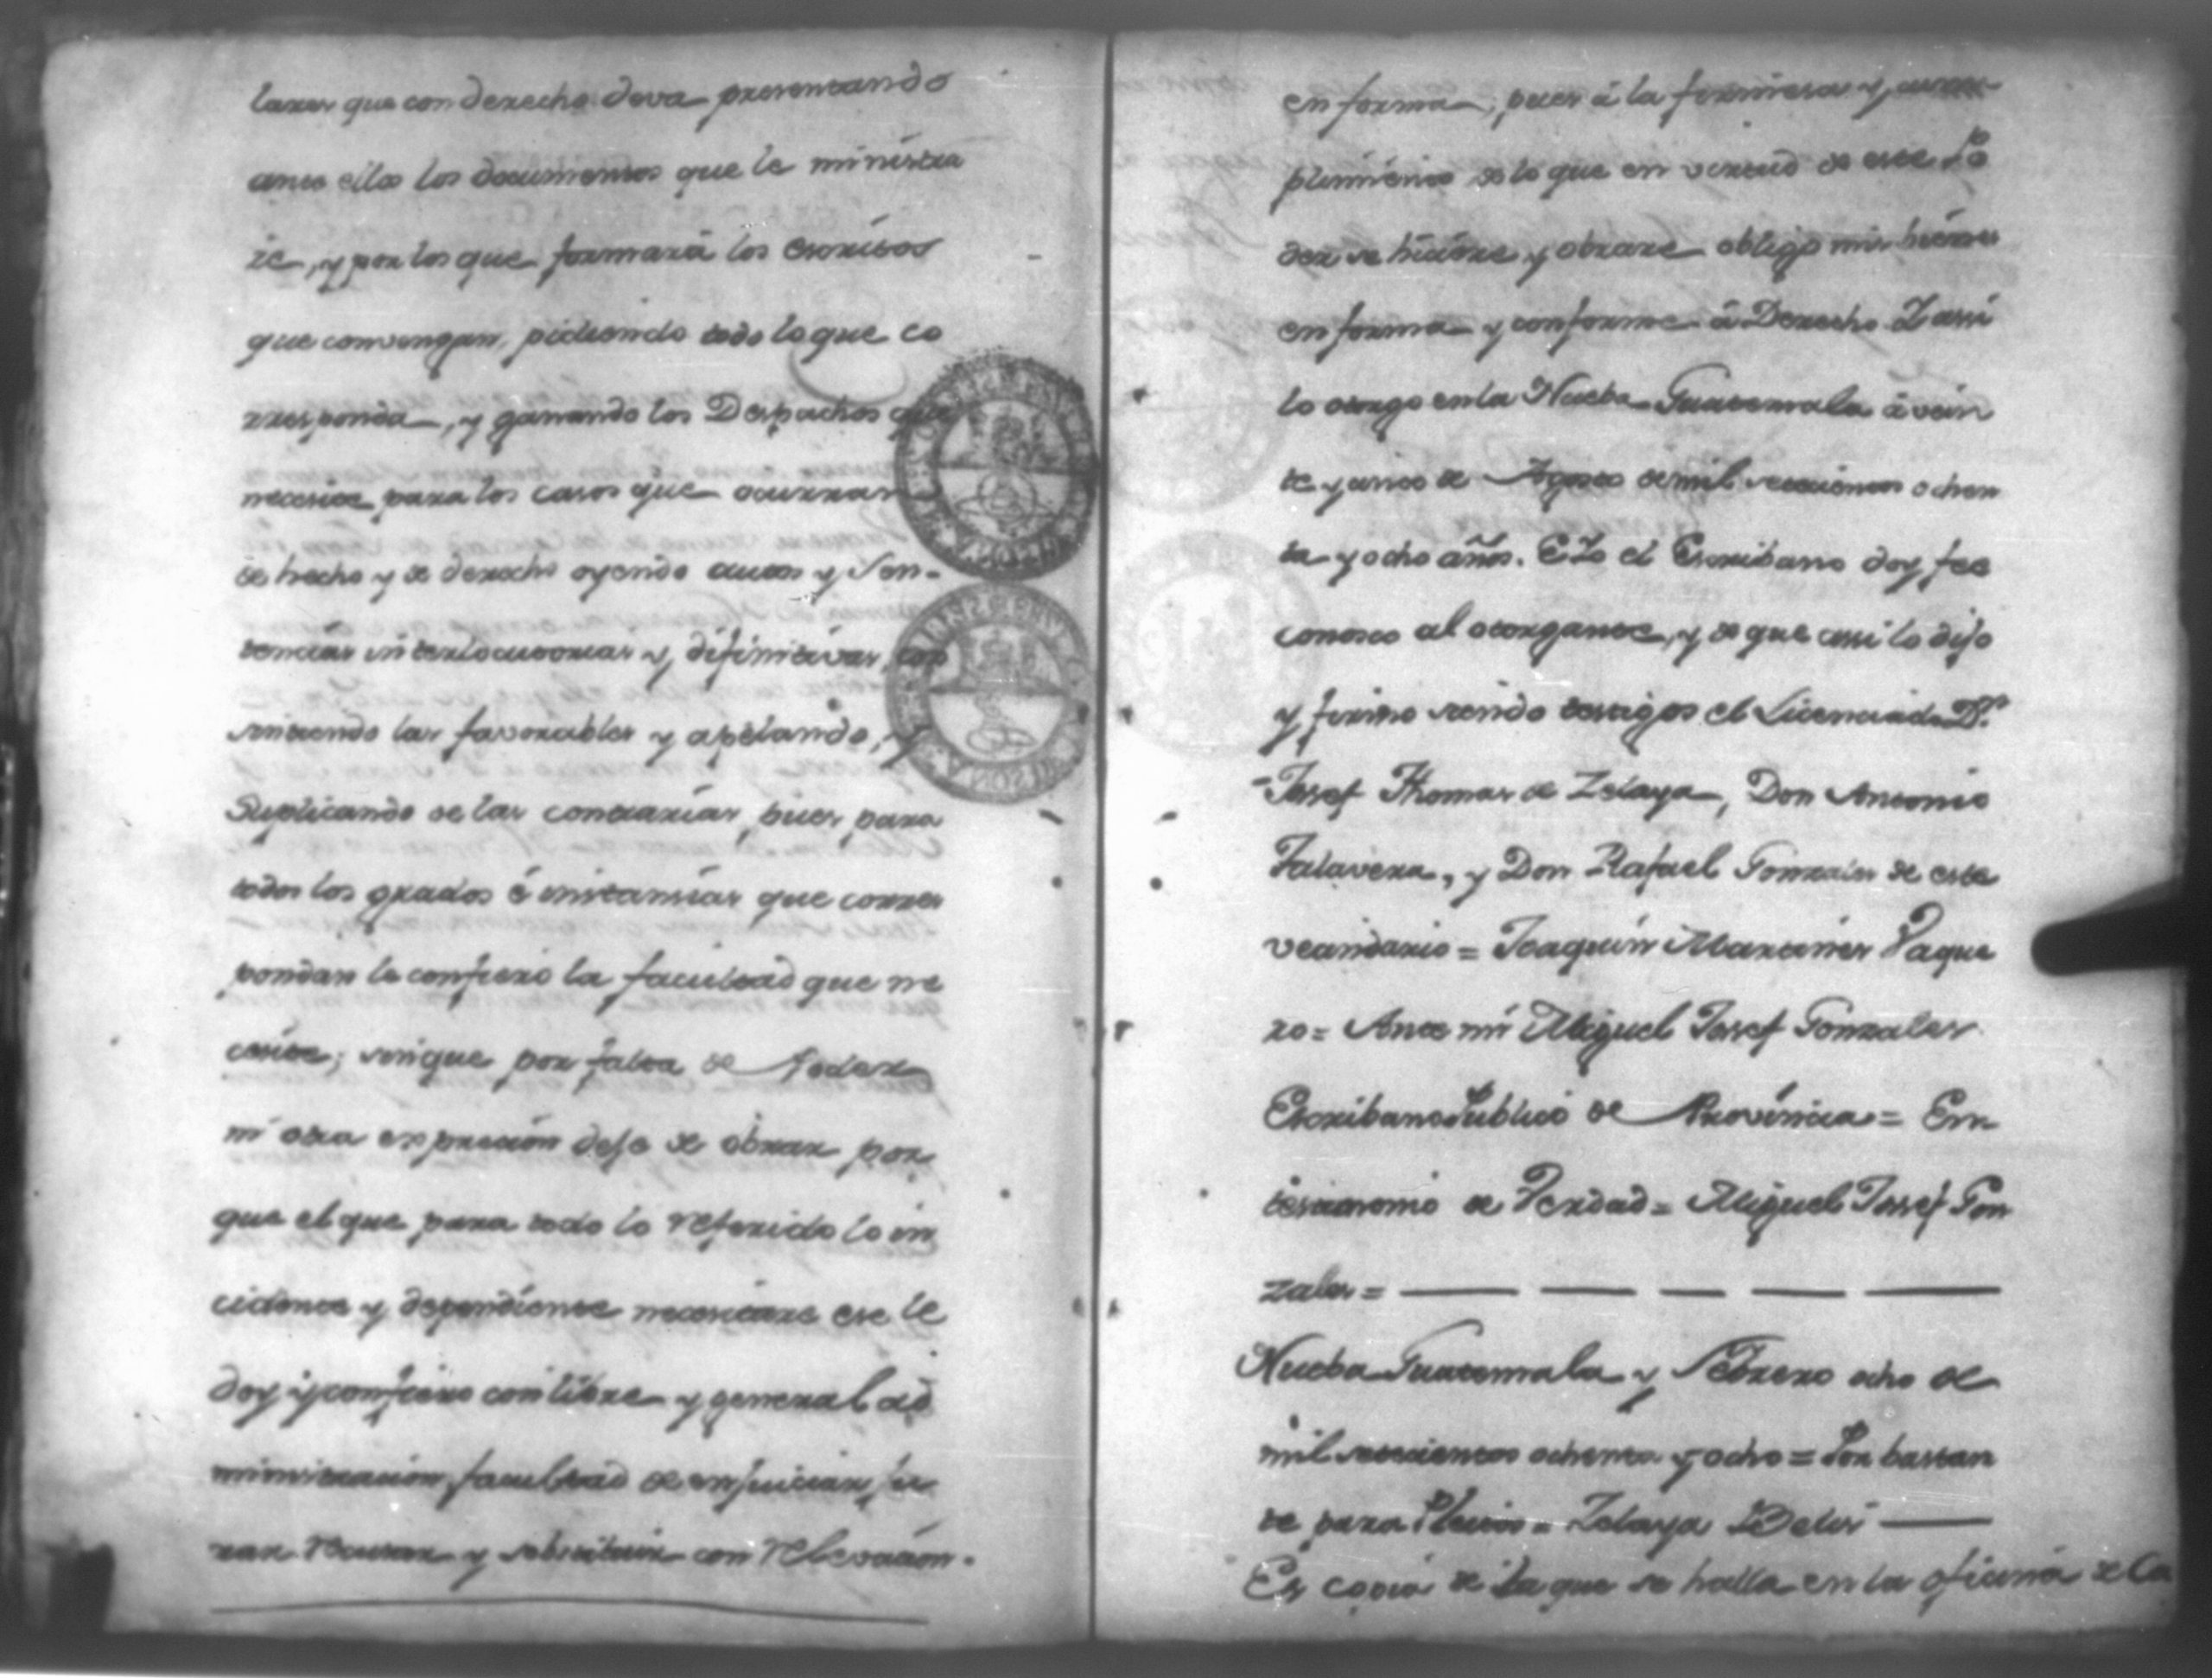 lares que con derecho deva presentando
ante ellos los documentos que le ministra
re, y por los que formará los escritos
que convengan, pidiendo todo lo que co
rresponda, y ganando los Despachos que
necesite para los casos que ocurran
de hecho y de derecho oyendo autos y Sen-
tencias interlocutorias y difinitivas, con
sintiendo las favorables y apelando, y
Suplicando de las contrarias, pues para
todos los grados é instancias que corres
pondan le confiero la facultad que ne
cesite; sin que por falta de Poder
ni otra expresion deje de obrar por
que el que para todo lo referido lo in
cidente y dependiente necesitare ese le
doy y confiero con libre y general ad
ministracion, facultad de enjuiciar, ju
rar recusar y substituir con relevacion.
en forma, pues á la firmesa y cum-
plimiento de lo que en virtud de este Po
der se hiciere y obrare obligo mis bienes
en forma y conforme á Derecho Y assi
lo otorgo en la Nueba Guatemala á vein
te y cinco de Agosto de mil setecientos ochen
ta y ocho años. E Yo el Escribano doy fee
conosco al otorgante, y de que assi lo dijo
y firmo siendo testigos el Licenciado Dn
Josef Thomas de Zelaya, Don Antonio
Talavera, y Don Rafael Gonzales de este
vecindario = Joaquin Martines Vaque
ro = Ante mi Miguel Josef Gonzales
Escribano Publico de Provincia = En
testimonio de Verdad = Miguel Josef Gon
zales =
Nueba Guatemala y Febrero ocho de
mil setecientos ochenta y ocho = Por bastan
te para Pleitos = Zelaya
Es copia de la que se halla en la oficina de la